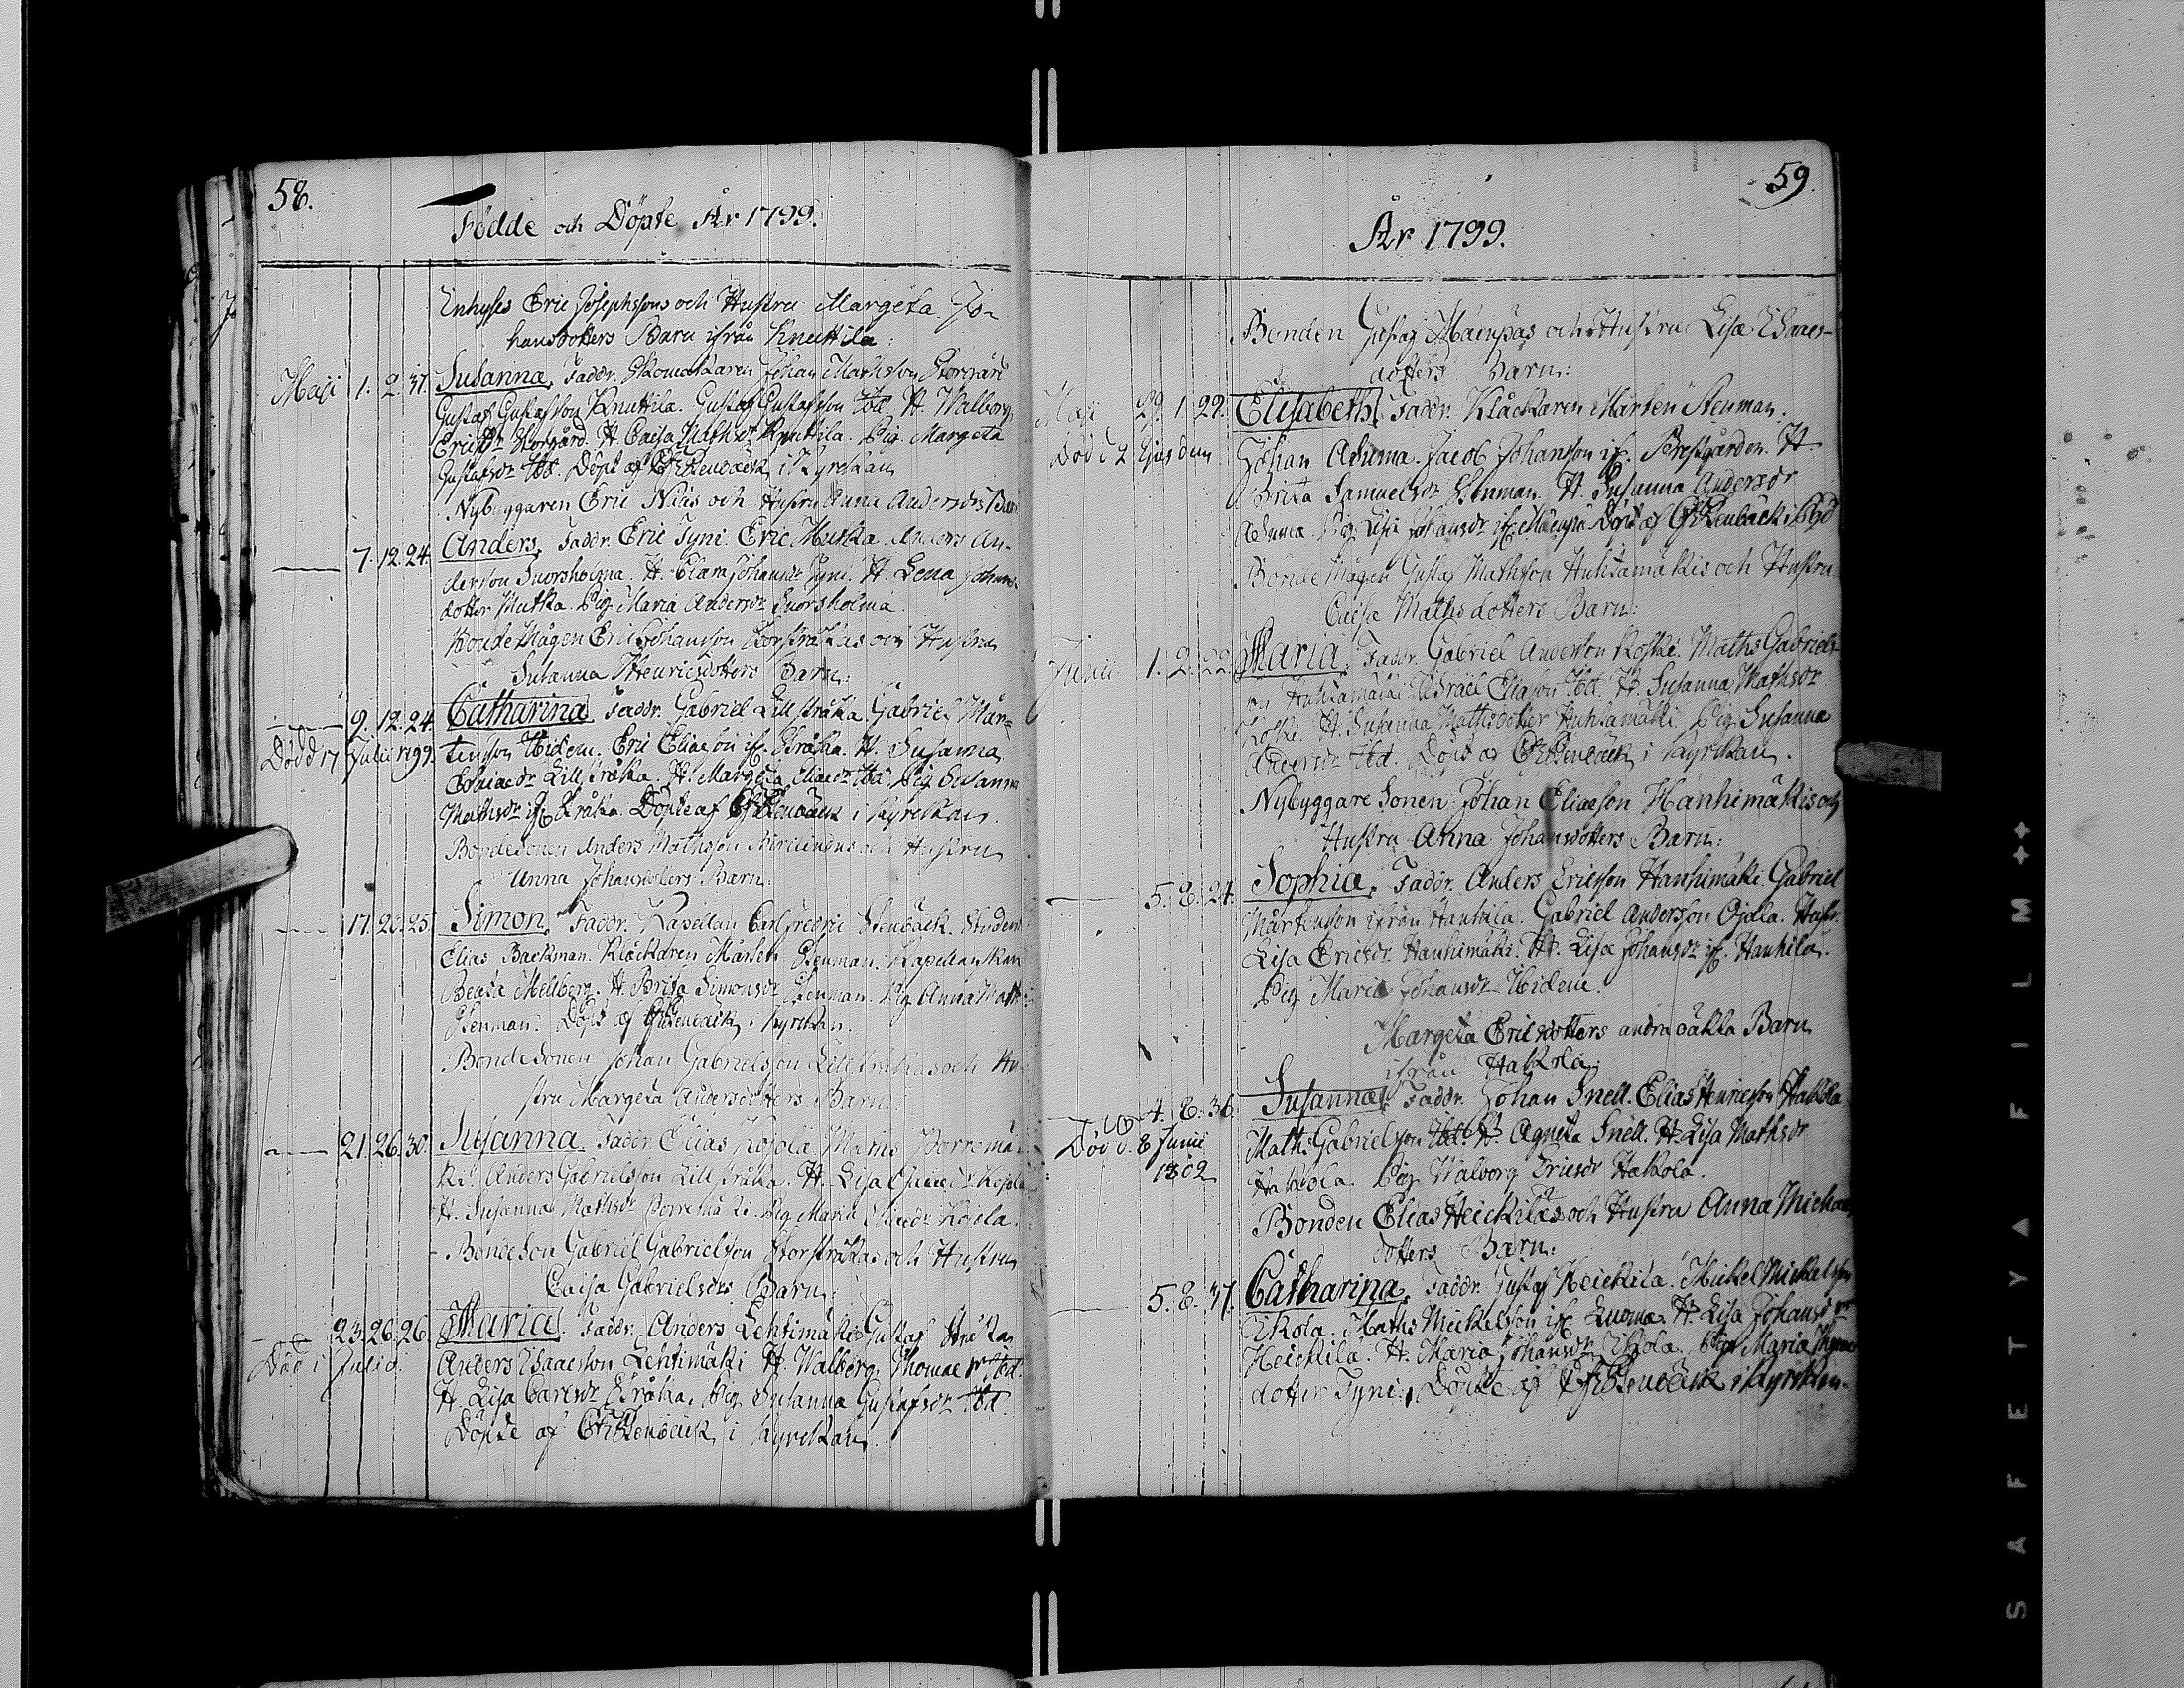 58.
Födde och Döpte År 1799.
Enhyses Eric Josephssons och Hustru Margeta Jo-
hansdotters Barn ifrån Knuttila:
Maji 1. 2. 37. Susanna. Faddr. Skomakaren Johan Mathsson Storgård
Gustaf Gustafsson Knuttila. Gustaf Gustafsson Ibd. H. Walborg
Ericsdr Storgård. H. Caisa Mathsdr Knuttila. Pig. Margeta
Gustafsdr Ibd. Döpt af CFStenbäck i Kyrckan
Nybyggaren Eric Niias och Hustru Anna Andersdrs Barn
7. 12. 24. Anders. Faddr. Eric Tyni. Eric Mutka. Anders An-
dersson Snorsholma. H. Clara Johansdr Tyni. H. Lena Johans-
dotter Mutka. Pig. Maria Andersdr Snorsholma.
Bonde Mågen Eric Johansson Storstråkas och Hustru
Susanna Henricsdotters Barn:
9. 12. 24. Catharina. Faddr. Gabriel Lillstråka. Gabriel Mår-
Död d 17 Julii 1799. tensson Hidem. Eric Eliasson if. Stråka. H. Susanna
Esaiaedr Lillstråka. H. Margeta Eliaedr Ibd. Pig. Susanna
Mathsdr if. Stråka. Döpte af CFStenbäck i Kyrckan.
Bondesonen Anders Mathsson och Hustru
Anna Johansdoters Barn:
17. 20. 25. Simon. Faddr. Kapellan Carl Fredric Stenbäck. Student
Elias Backman. Klåckaren Mårten Stenman. Kapellanskan
Beata Mellberg. H. Brita Simonsdr Stenman. Pig. Anna Maths
Stenman. Döpt af CFStenbäck i Kyrckan.
Bondesonen Johan Gabrielsson Lillstråkas och Hu-
stru Margeta Andersdotters Barn:
21. 26. 30. Susanna. Faddr. Elias Kojola. Maths Porremä-
ki. Anders Gabrielsson Lillstråka. H. Lisa Kojola
H. Susanna Mathsdr Porremäki. Pig. Maria Eliaedr Kojola.
Bondeson Gabriel Gabrielsson Storstråkas och Hustru
Caisa Gabrielsdrs Barn:
23. 26. 26. Maria. Faddr. Anders Lehtimäki. Gustaf Stråka
Död i Julii Anders Isaacsson Lehtimäki. H. Walborg Thomaedr Ibd.
H. Lisa Carlsdr Stråka. Pig. Susanna Gustafsdr Ibd.
Döpte af CFStenbäck i Kyrckan.
59.
År 1799.
Bonden Gustaf Mäenpäs och Hustru Lisa Isaacs-
dotters Barn:
Maji 29. 1. 29. Elisabeth. Faddr. Klåckaren Mårten Stenman.
Död d 2 Ejusdem Johan Asuma. Jacob Johansson if. Prestgården. H.
Brita Samuelsdr Stenman. H. Susanna Andersdr
Asuma. Pig. Lisa Johansdr if. Mäenpä. Döpt af CFStenbäck
Bonde Mågen Gustaf Mathsson Huhtamäkis och Hustru
Caisa Mathsdotters Barn:
Junii 1. 2. 22. Maria. Faddr. Gabriel Andersson Koski. Maths Gabriels-
son Huhtamäki. Israel Eliasson Ibd. H. Susanna Mathsdr
Koski. H. Susanna Mathsdotter Huhtamäki. Pig. Susanna
Andersdr Ibd. Döpt af CFStenbäck i Kyrckan.
Nybyggare Sonen Johan Eliaeson Hanhimäkis och
Hustru Anna Johansdotters Barn:
5. 8. 24. Sophia. Faddr. Anders Ericsson Hanhimäki. Gabriel
Mårtensson ifrån Hanhila. Gabriel Andersson Ojala. Hustr.
Lisa Ericsdr Hanhimäki. H. Lisa Johansdr if. Hanhila.
Pig. Maria Johansdr Hidem.
Margeta Ericsdotters andra oäkta Barn
ifrån Hakola:
4. 8. 36. Susanna. Faddr. Johan Snell. Elias Henricsson Hakola
Död d. 8 Junii Maths Gabrielsson Ibd. H. Agneta Snell. H. Lisa Mathsdr
1802 Hakola. Pig. Walborg Ericsdr Hakola.
Bonden Elias Heickiläs och Hustru Anna Michels
dotters Barn:
5. 8. 37. Catharina. Faddr. Gustaf Heickilä. Mickel Mickelsson
Ekola. Maths Mickelsson if. Luoma. H. Lisa Johansdr
Heickilä. H. Maria Johansdr Ekola. Pig. Maria
dotter Tyni. Döpte af CFStenbäck i Kyrckan.
SAFETY FILM